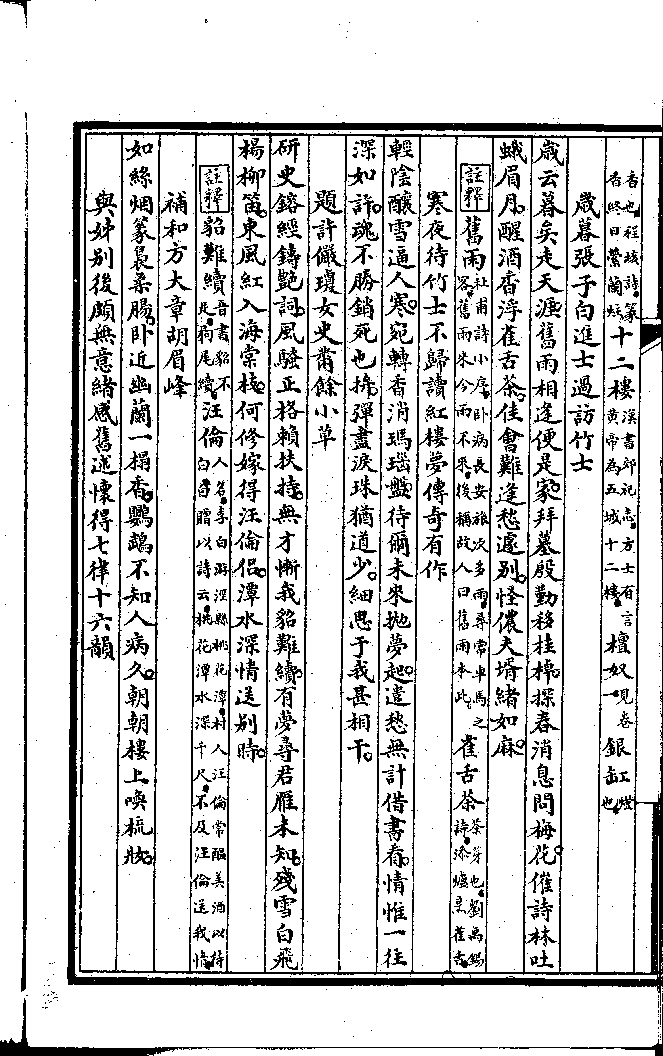 香也程垓詩篆香終日縈蘭炷十二樓漢書郊祀志方士有言黃帝為五城十二樓檀奴見卷一銀缸燈也
歲暮張子白進士過訪竹士
歲云暮矣走天涯舊雨相逢便是家拜墓殷勤移桂棹探春消息問梅花催詩林吐
蛾眉月醒酒香浮雀舌茶佳會難逢愁遽別怪儂夫壻緒如麻
註釋舊雨杜甫詩小序臥病長安旅次多雨尋常車馬之客舊雨來今雨不來後稱故人曰舊雨本此雀舌茶茶芽也劉禹錫詩添爐烹雀舌
寒夜待竹士不歸讀紅樓夢傳奇有作
輕陰釀雪逼人寒宛轉香消瑪瑙盤待爾未來拋夢起遣愁無計借書看情惟一往
深如許魂不勝銷死也擠彈盡淚珠猶道少細思于我甚相干
題許儷瓊女史黹餘小草
研史鎔經鑄艷詞風騷正格賴扶持無才慚我貂難續有夢尋君雁未知殘雪白飛
楊柳笛東風紅入海棠枝何修嫁得汪倫侶潭水深情送別時
註釋貂難續晉書貂不足狗尾續汪倫人名李白遊涇縣桃花潭村人汪倫常醞美酒以待白白贈以詩云桃花潭水深千尺不及汪倫送我情
補和方大章胡眉峰
如絲烟篆裊柔腸臥近幽蘭一榻香鸚鵡不知人病久朝朝樓上喚梳妝
與姊別後頗無意緒感舊述懷得七律十六韻